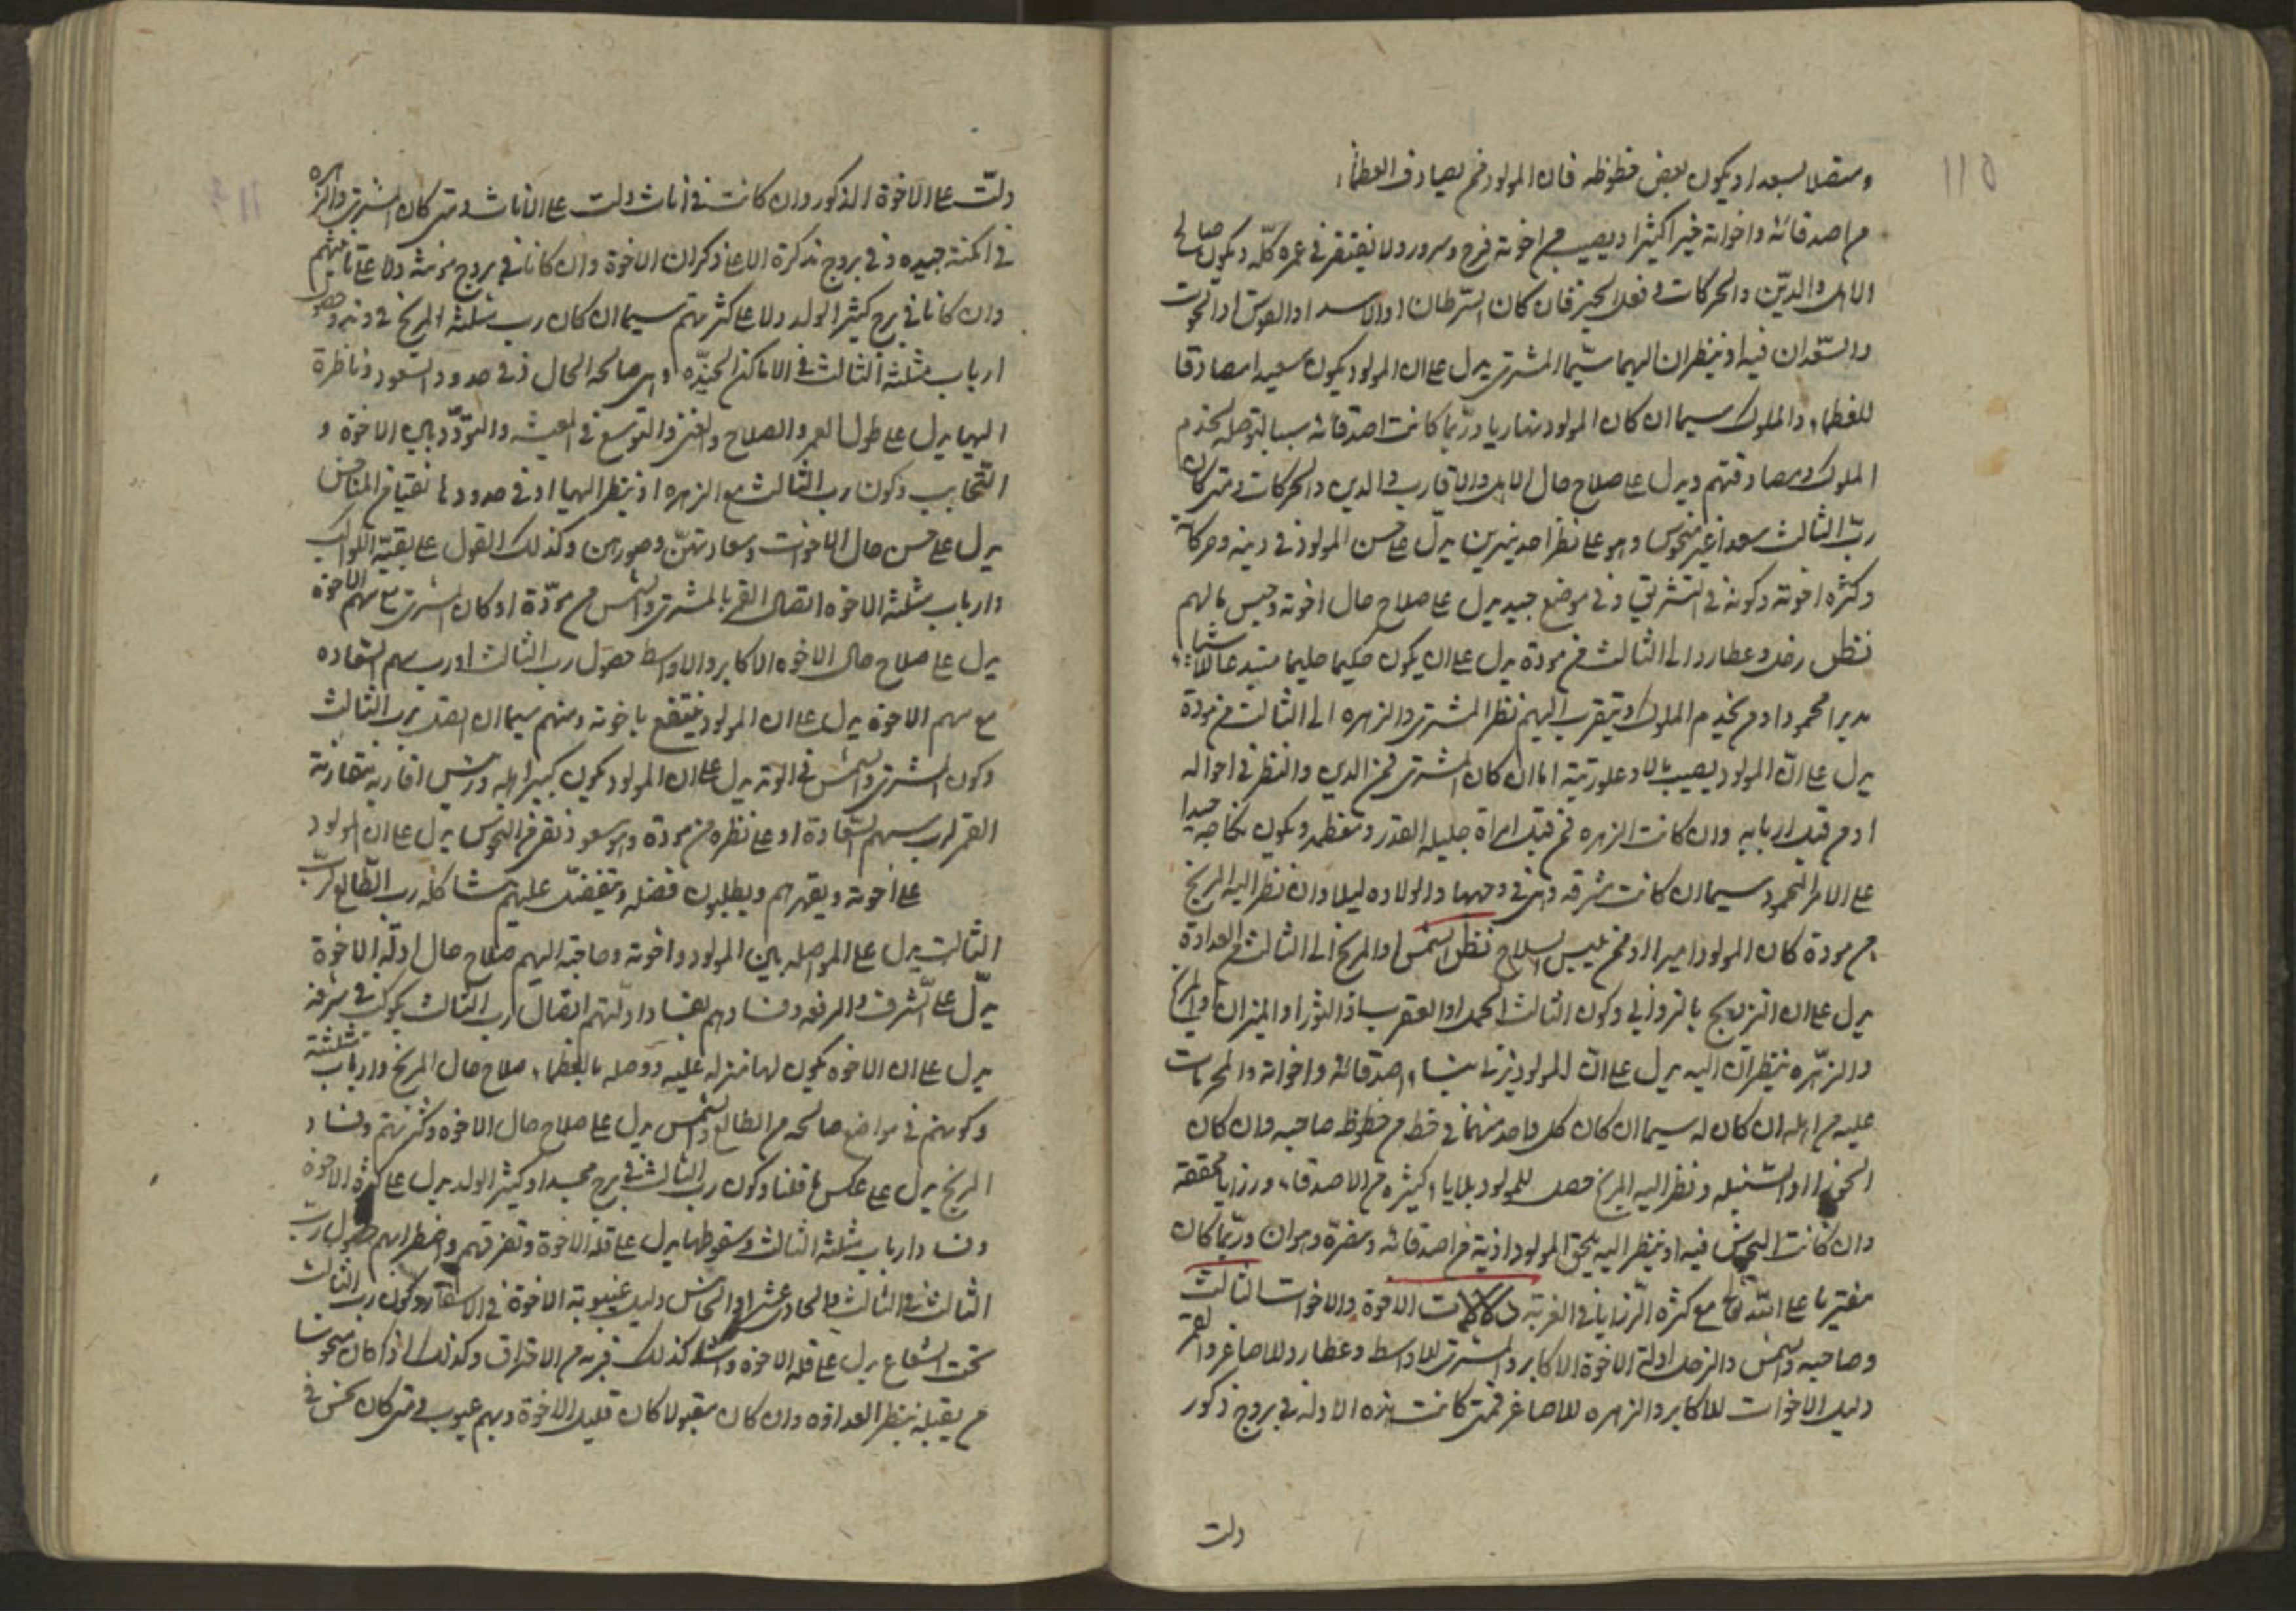 115
ومتصلا بسعد او يكون لبعض حظوظه فان المولود ممن يصادف العظماء
من اصدقائه واخوانه خيرا كثيرا ويصيب من اخوته فرح وسرور ولا يفتقر في عمره كله ويكون صالح
الاهل والدين والحركات وفعل الخير فان كان السرطان او الاسد او القوس او الحوت
والسعدان فيه او ينظران اليهما سيما المشترى يدل على ان المولود يكون سعيدا مصادقا
للعظماء والملوك سيما ان كان المولود نهاريا وربما كانت اصدقائه سببا لتوصله لخدم
الملوك ومصادقتهم ويدل على صلاح حال الاهل والاقارب والدين والحركات ومتى كان
رب الثالث سعدا غير منحوس وهو على نظر احد نيرين يدل على حسن المولود في دينه وحركاته
وكثرة اخوته وكونه في التشريق وفي موضع جيد يدل على صلاح حال اخوته وحسن بالهم
نظر زحل وعطارد الى الثالث من مودة يدل على ان يكون حكيما حليما
مدبرا محمودا ومن يخدم الملوك او يتقرب اليهم نظر المشترى والزهره الى الثالث من مودة
يدل على ان المولود يصيب مالا وعلو رتبة اما ان كان المشترى فمن الدين والنظر في احواله
او من قبل اربابه وان كانت الزهره فمن قبل امراة جليلة القدر ومعظمة ويكون نكاحه جيدا
على الامر المحمود سيما ان كانت مشرقه وهي في وجهها والولاده ليلا وان نظر اليه المريخ
من مودة كان المولود اميرا او ممن يلبس السلاح نظر الشمس او المريخ الى الثالث من العداوة
يدل على ان التزويج بالزوانى وكون الثالث الحمل او العقرب او الثور او الميزان والمريخ
والزهره ينظران اليه يدل على ان المولود يزنى بنساء اصدقائه واخوانه والمحرمات
عليه من اهله ان كان له سيما ان كان كل واحد منهما في حظ من حظوظ صاحبه وان كان
الجوزا او السنبله ونظر اليه المريخ حصل للمولود بلايا كثيره من الاصدقاء ورزايا محققة
وان كانت النحوس فيه او ينظر اليه يلحق المولود اذية من اصدقائه ومضرة وهوان وربما كان
مفتريا على الله مع كثرة الرزايا في الغربة الاخوة والاخوات الثالث
وصاحبه والشمس والزحل ادلة الاخوة الاكابر والمشترى للاواسط وعطارد للاصاغر والقمر
دليل الاخوات للاكابر والزهره للاصاغر فمتى كانت هذه الادلة في بروج ذكور
دلت
دلت على الاخوة الذكور وان كانت في اناث دلت على الاناث ومتى كان المشترى والزهره
في امكنة جيده وفي بروج مذكرة دلا على ذكران الاخوة وان كانا في بروج مؤنثة دلا على اناثهم
وان كانا في برج كثير الولد دلا على كثرتهم سيما ان كان رب مثلثة المريخ في وتد وحصول
ارباب مثلثة الثالث في الاماكن الجيده وهى صالحة الحال وفي حدود السعود وناظرة
اليها يدل على طول العمر والصلاح والغنى والتوسع في المعيشه والتودد بين الاخوة و
التحابب وكون رب الثالث مع الزهره او ينظر اليها او في حدودها نقيا من المناحس
يدل على حسن حال الاخوات وسعادتهن وصورهن وكذلك القول على بقية الكواكب
وارباب مثلثة الاخوه اتصال القمر بالمشترى والشمس من مودة او كان المشترى مع سهم الاخوة
يدل على صلاح حال الاخوه الاكابر والاواسط حصول رب الثالث او رب سهم السعاده
مع سهم الاخوة يدل على ان المولود ينتفع باخوته ومنهم سيما ان اتصل برب الثالث
وكون المشترى والشمس في الوتد يدل على ان المولود يكون كبير اهله ورئيس اقاربه مقارنة
القمر لرب سهم السعادة او على نظره من مودة وهو سعود ونقى من النحوس يدل على ان المولود
على اخوته ويقهرهم ويطلبون فضله ويتفضل عليهم مشاكلة رب الطالع لرب
الثالث يدل على المواصله بين المولود واخوته وصاحبه اليهم صلاح حال ادلة الاخوة
يدل على الشرف والرفعه وفسادهم بفساد ادلتهم اتصال رب الثالث بكوكب في شرفه
يدل على ان الاخوة يكون لها منزلة عليه ووصله بالعظماء صلاح حال المريخ وارباب مثلثته
وكونهم في مواضع صالحه من الطالع والشمس يدل على صلاح حال الاخوه وكثرتهم وفساد
المريخ يدل على عكس ما قلنا وكون رب الثالث في برج مجسد او كثير الولد يدل على كثرة الاخوة
وفساد ارباب مثلثة الثالث وسقوطها يدل على قلة الاخوة وتفرقهم واضطرابهم حصول رب
الثالث في الثالث والحادى عشر او الخامس دليل غيبوبة الاخوة في الاسفار وكون رب الثالث
تحت الشعاع يدل على قلة الاخوة وكذلك قربه من الاحتراق وكذلك اذا كان منحوسا
من يقبله بنظر العداوه وان كان مقبولا كان قليل الاخوة وبهم عيوب ومتى كان نحس في